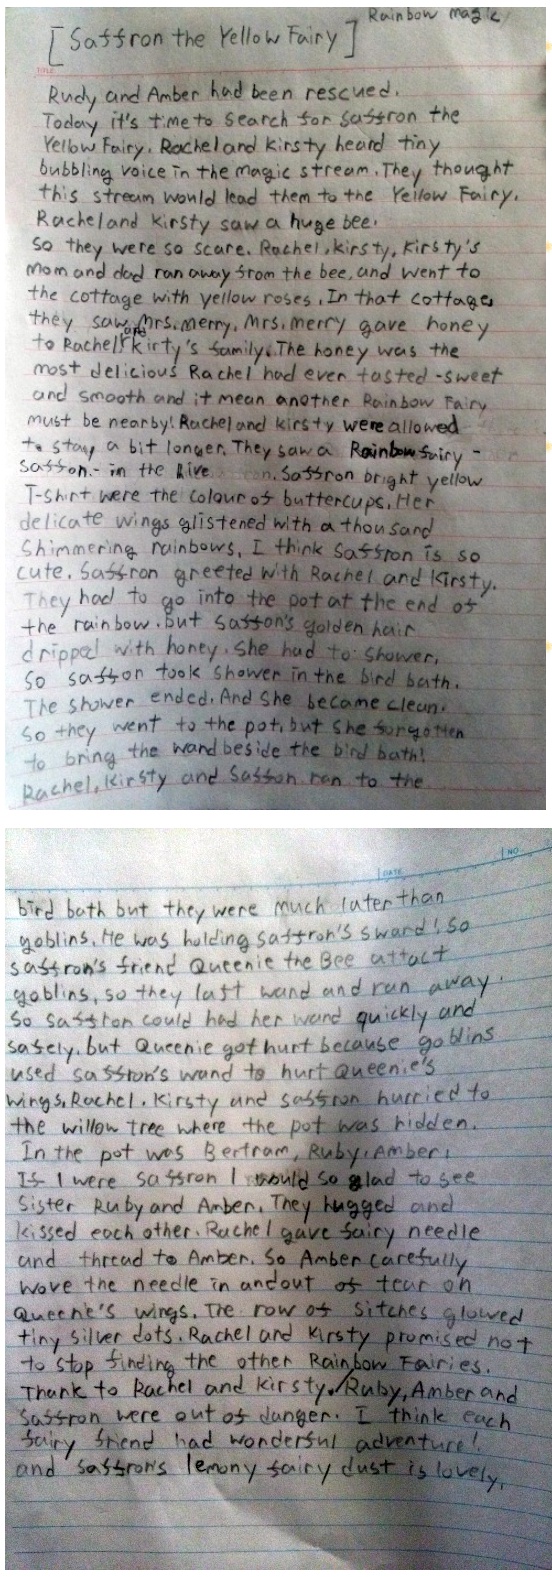 Rainbow magic
[Saffron the Yellow Fairy]
TITLE
Rudy and Amber had been rescued.
Today it's time to search for saffron the
Yellow Fairy. Rachel and Kirsty heard tiny
bubbling voice in the magic stream. They thought
this stream would lead them to the Yellow Fairy.
Rachel and Kirsty saw a huge bee.
So they were so scare. Rachel, Kirsty, Kirsty's
mom and dad ran away from the bee, and went to
the cottage with yellow roses. In that cottage
they saw Mrs. merry. Mrs. merry gave honey
to Rachel and Kirty's family. The honey was the
most delicious Rachel had ever tasted - sweet
and smooth and it mean another Rainbow Fairy
must be nearby! Rachel and Kirsty were allowed
to stay a bit longer. They saw a Rainbow fairy -
Saffon - in the. Saffron bright yellow
T-shirt were the colour of buttercups. Her
delicate wings glistened with a thousand
Shimmering rainbows. I think Saffron is so
cute. Saffron greeted with Rachel and Kirsty.
They had to go into the pot at the end of
the rainbow. but saffon's golden hair
dripped with honey. She had to shower.
So saffron took shower in the bird bath.
The shower ended. And She became clean.
So they went to the pot, but she forgotten
to bring the wand beside the bird bath!
Rachel, Kirsty and Saffson ran to the
NO.
DATE
bird bath but they were much later than
goblins. He was holding saffron's sward! So
saffron's friend Queenie the Bee attact
goblins, so they last wand and ran away.
So saffron could had her wand quickly and
safely. but Queenie got hurt because goblins
used saffron's wand to hurt Queenie's
wings. Rachel. Kirsty and saffron hurried to
the willow tree where the pot was hidden.
In the pot was Bertram, Ruby, Amber.
If I were saffron I would so glad to see
Sister Ruby and Amber. They hugged and
kissed each other. Rachel gave fairy needle
and thread to Amber. So Amber carefully
wove the needle in and out of tear on
Queenie's wings. The row of sitches glowed
tiny silver dots. Rachel and Kirsty promised not
to stop finding the other Rainbow Fairies.
Thank to Rachel and Kirsty. / Ruby, Amber and
Saffron were out of danger. I think each
fairy friend had wonderful adventure!
and saffron's lemony fairy dust is lovely.